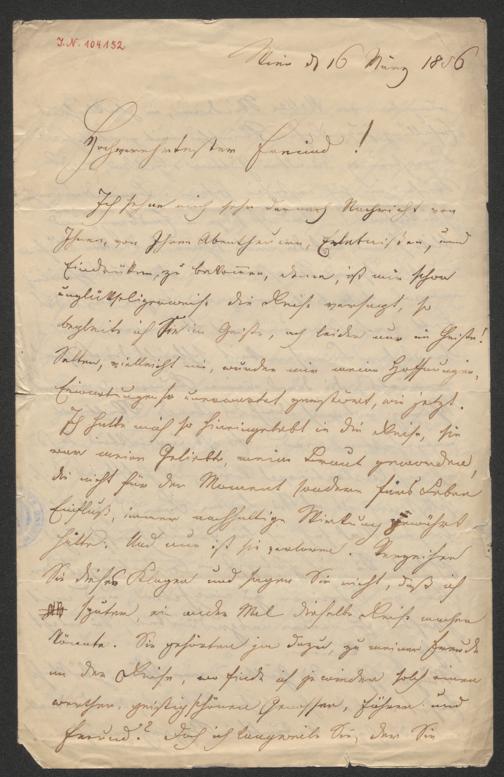 I.N. 104.132
Wien d 16 März 1856
Hochverehrtester Freund!
Ich sehne mich sehr darnach Nachricht von
Ihnen, von Ihren Abentheuern, Erlebnissen, und
Eindrüken, zu bekommen, denn, ist mir schon
unglükseligerweise die Reise versagt, so
begleite ich Sie im Geiste, ach leider nur im Geiste!
Selten, vielleicht nie, wurden mir meine Hoffnungen,
Erwartungen so unerwartet zerstört, wie jetzt.
Ich hatte mich so hineingelebt in die Reise, sie
war meine Geliebte, meine Braut geworden,
die nicht für den Moment sondern fürs Leben
Einfluß, immer nachhaltige Wirkung gewährt
hätte. Und nun ist sie verloren. Verzeihen
Sie dieses Klagen und sagen Sie nicht, daß ich
später, ein ander Mal dieselbe Reise machen
könnte. Sie gehörten ja dazu, zu meiner Freude
an der Reise, wo finde ich je wieder solch einen
werthen, geistig schönen Genossen, Führer und
Freund? Doch ich langweile Sie, der Sie